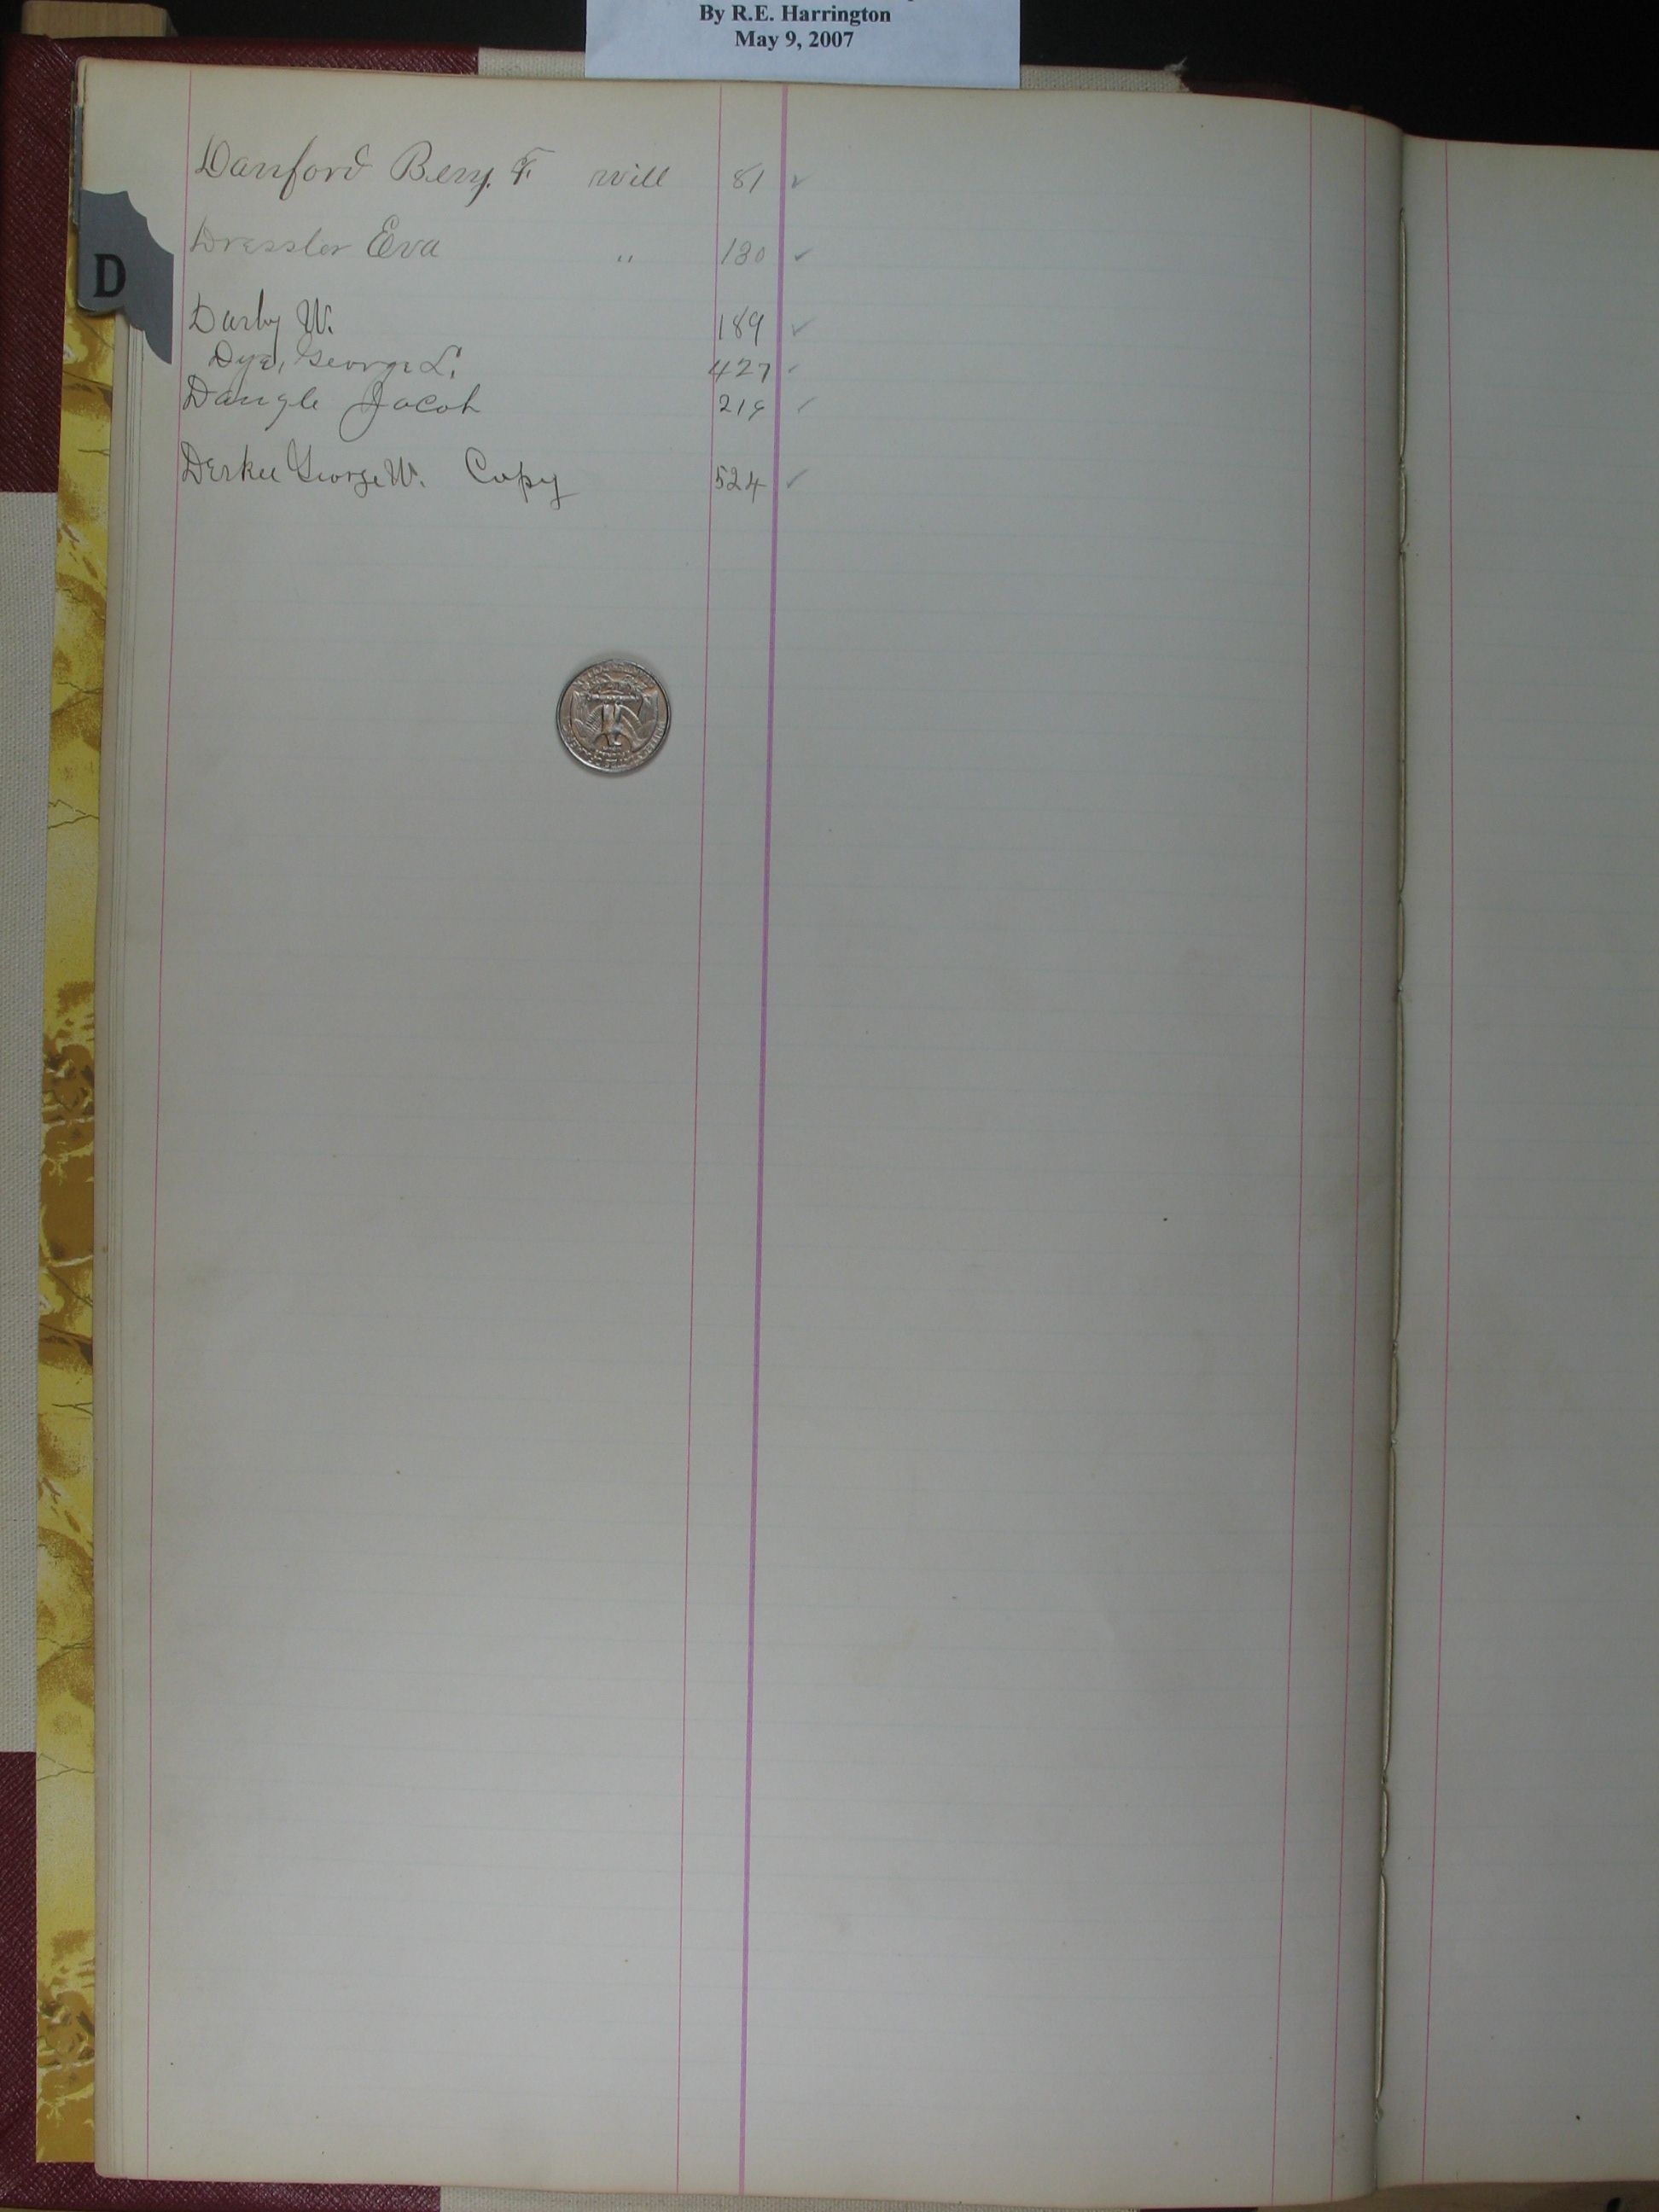 By R.E. Harrington
May 9, 2007
Danford Benj. F. will 81 ✓
D
Dressler Eva " 130 ✓
Darby W. 189 ✓
Dye, George L. 427 ✓
Dangle Jacob 219 ✓
George W. Copy 524 ✓